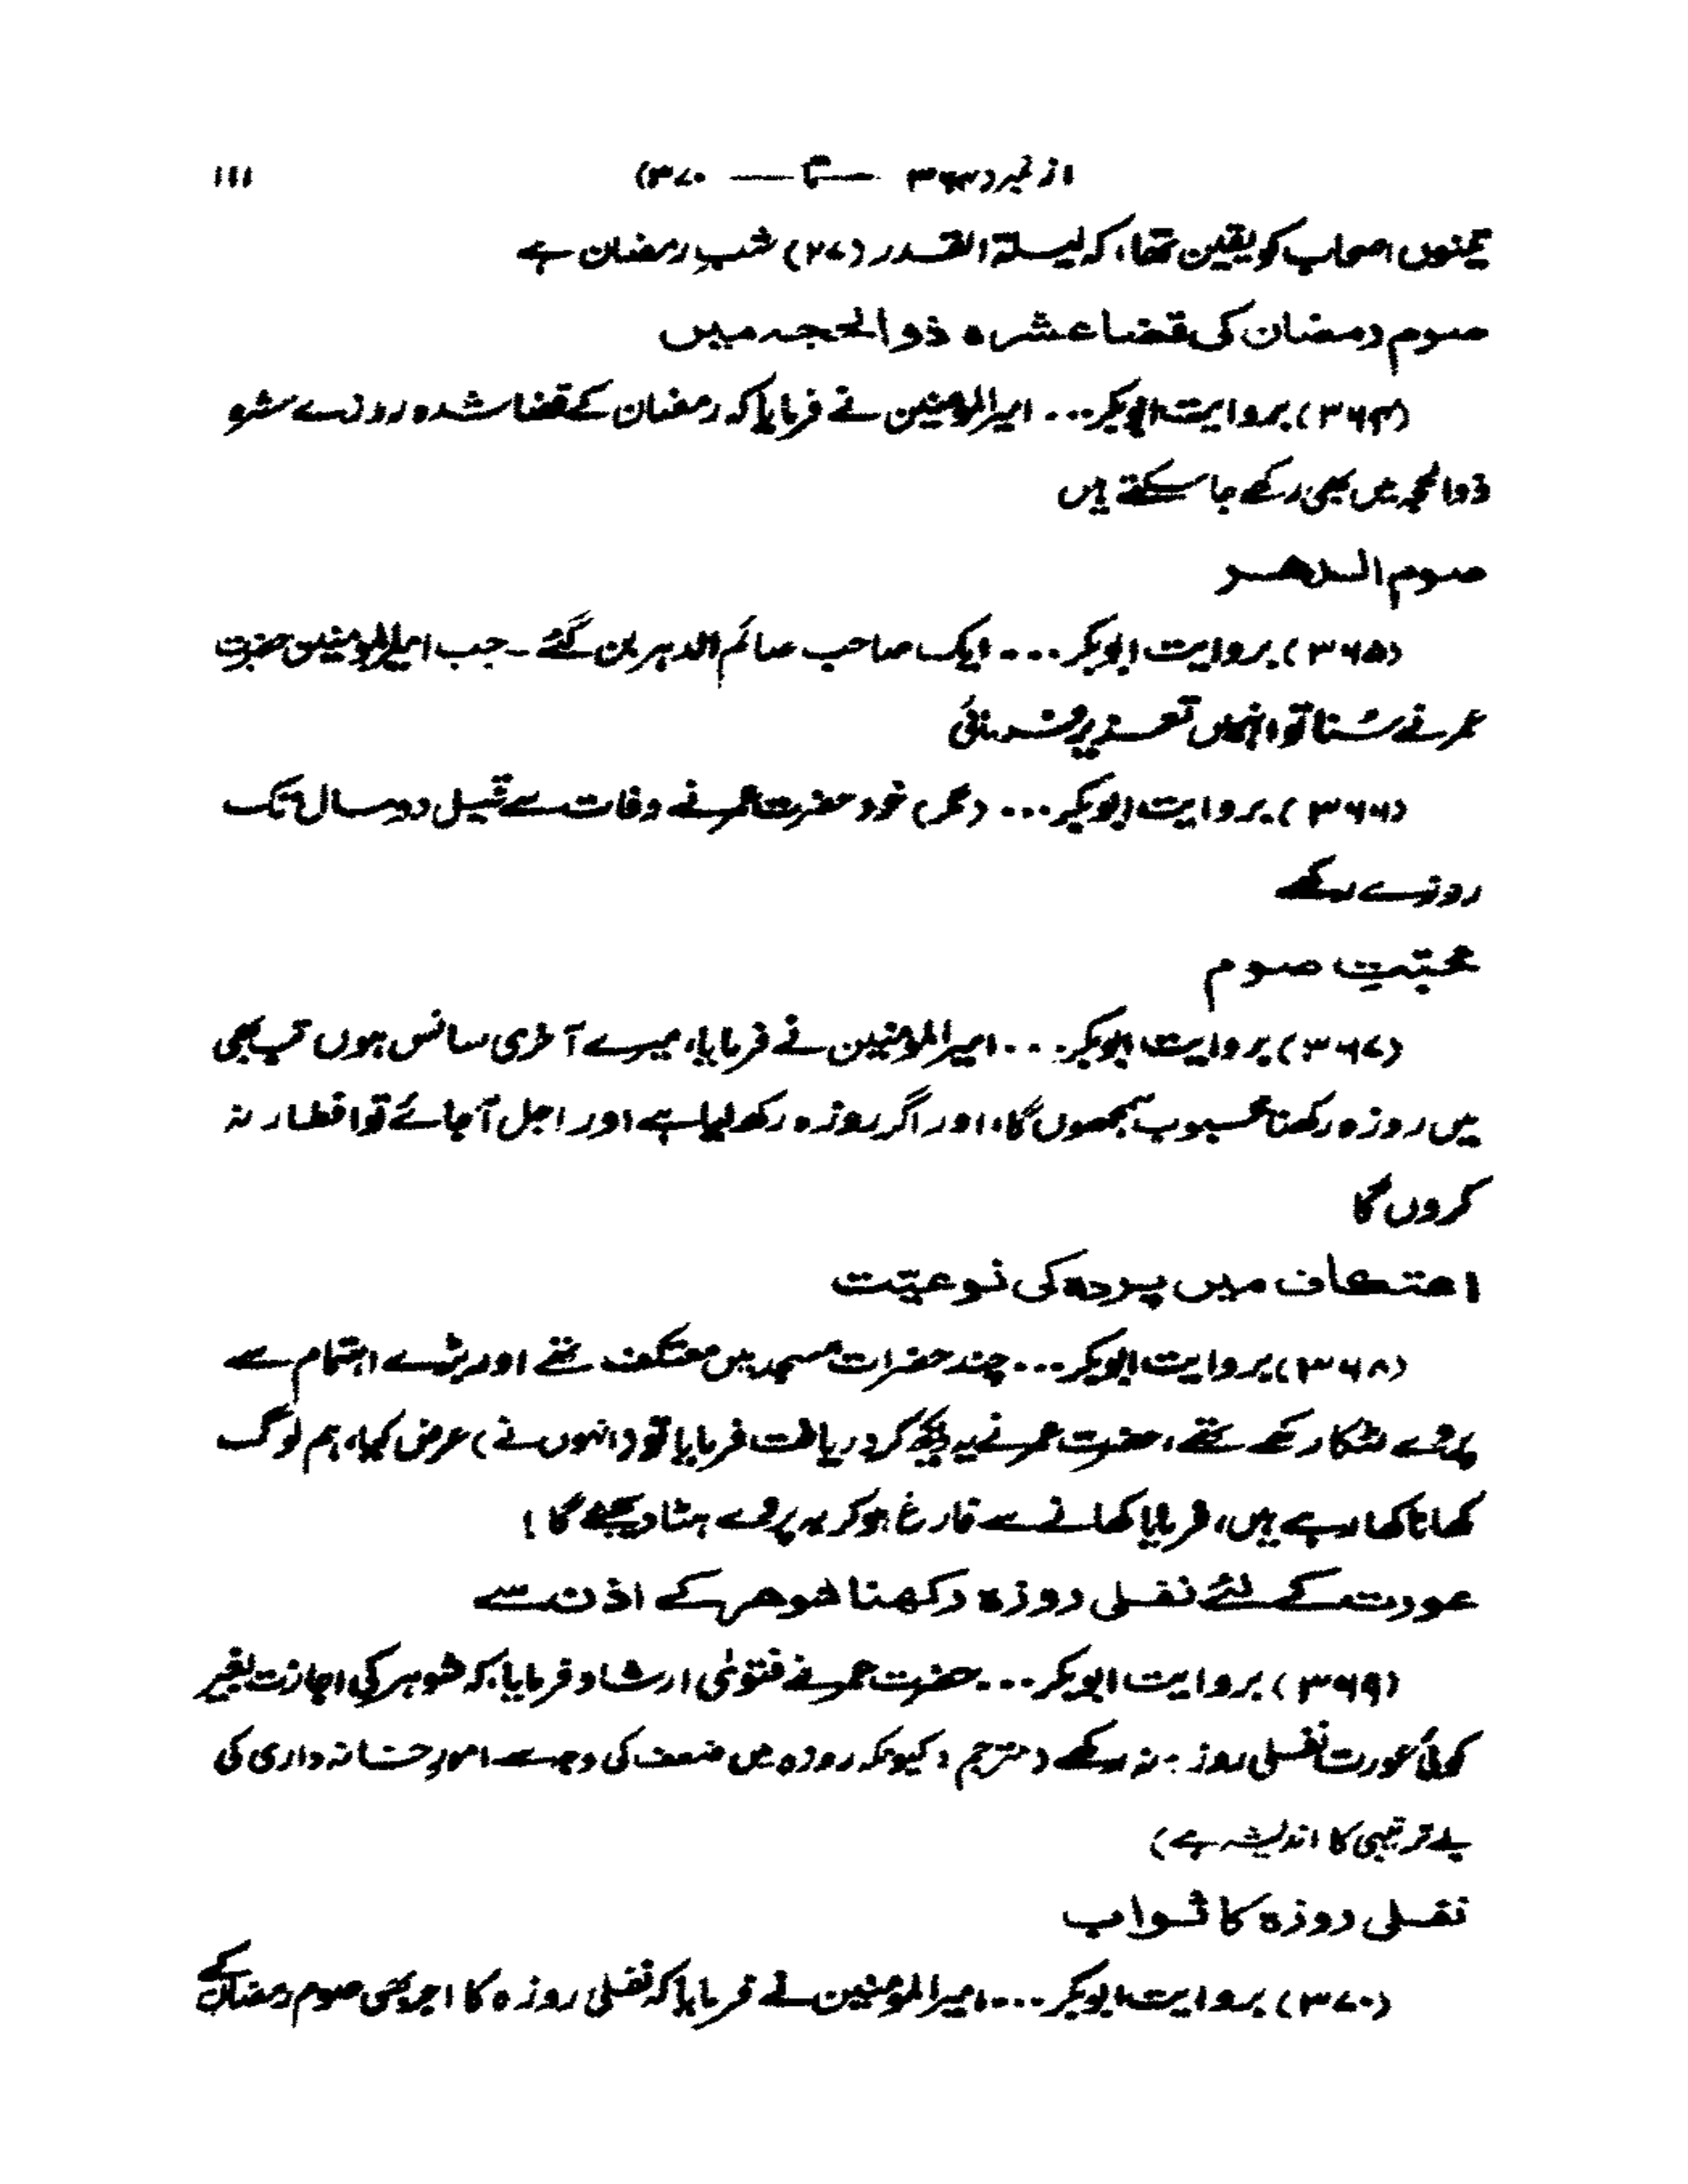 از نمبر (۳۶۳ — تا — ۳۷۰) ۱۱۱
تینوں اصحاب کو یقین تھا، کہ لیلۃ القدر (۲۷) شبِ رمضان ہے
صوم رمضان کی قضا عشرہ ذوالحجہ میں
(۳۶۴) بروایت ابوبکر... امیرالمومنین نے فرمایا کہ رمضان کے قضا شدہ روزے عشرہ
ذوالحجہ میں بھی رکھے جا سکتے ہیں
صوم الدھر
(۳۶۵) بروایت ابوبکر... ایک صاحب صائم الدہر بن گئے ۔ جب امیرالمومنین حضرت
عمر نے سُنا تو انہیں تعزیر فرمائی
(۳۶۶) بروایت ابوبکر... (مگر) خود حضرت عمر نے وفات سے قبل دو سال تک
روزے رکھے
محبّتِ صوم
(۳۶۷) بروایت ابوبکر... امیرالمؤمنین نے فرمایا، میرے آخری سانس ہوں تب بھی
میں روزہ رکھنا محبوب سمجھوں گا، اور اگر روزہ رکھ لیا ہے اور اجل آ جائے تو افطار نہ
کروں گا
اعتکاف میں پردہ کی نوعیّت
(۳۶۸) بروایت ابوبکر... چند حضرات مسجد میں معتکف تھے اور بڑے اہتمام سے
پردے لٹکا رکھے تھے، حضرت عمر نے یہ دیکھ کر دریافت فرمایا تو (انہوں نے) عرض کیا، ہم لوگ
کھانا کھا رہے ہیں، فرمایا کھانے سے فارغ ہو کر یہ پردے ہٹا دیجئے گا !
عورت کے لئے نفلی روزہ رکھنا شوھر کے اذن سے
(۳۶۹) بروایت ابوبکر... حضرت عمر نے فتویٰ ارشاد فرمایا، کہ شوہر کی اجازت بغیر
کوئی عورت نفلی روزہ نہ رکھے (مترجم: کیونکہ روزہ میں ضعف کی وجہ سے امورِ خانہ داری کی
بے ترتیبی کا اندیشہ ہے)
نفلی روزہ کا ثواب
(۳۷۰) بروایت ابوبکر... امیرالمؤمنین نے فرمایا کہ نفلی روزہ کا اجر بھی صوم رمضان کے